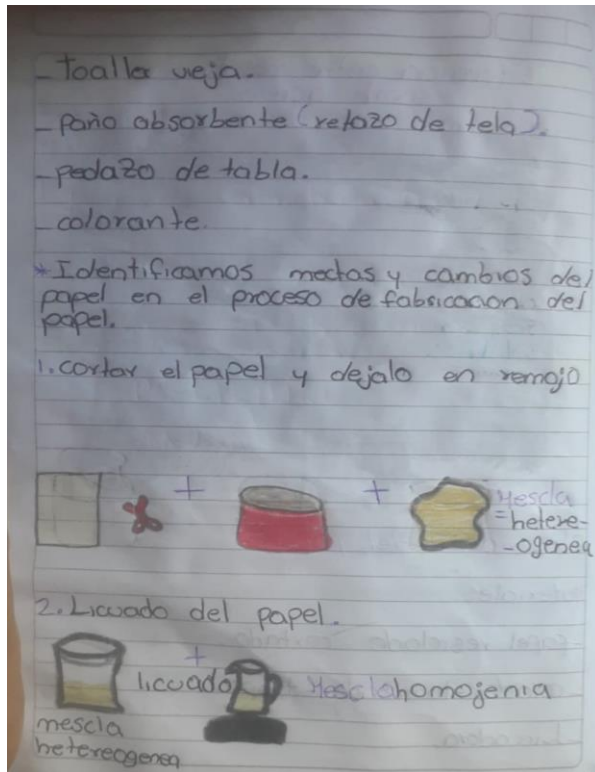 - toalla vieja.
- paño absorbente (retazo de tela).
- pedazo de tabla.
- colorante.
* Identificamos mectas y cambios del
papel en el proceso de fabricacion del
papel.
1. cortar el papel y dejalo en remojo
+ + Mescla
= hetere-
-ogenea
2. Licuado del papel.
+
licuado Mescla homojenia
mescla
hetereogenea